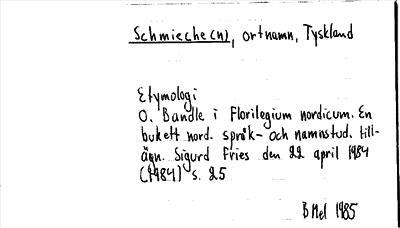 Schmieche(n), ortnamn, Tyskland
Etymologi
O. Bandle i Florilegium nordicum. En
bukett nord. språk- och namnstud. till-
ägn. Sigurd Fries den 22 april 1984
(1984) s. 25
BMel 1985